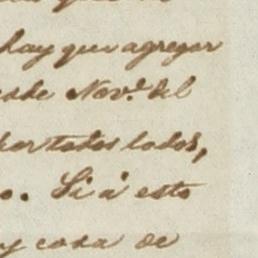 hay que agregar
esde Nov.e del
por todos lados,
o. Si á esto
y cosa de